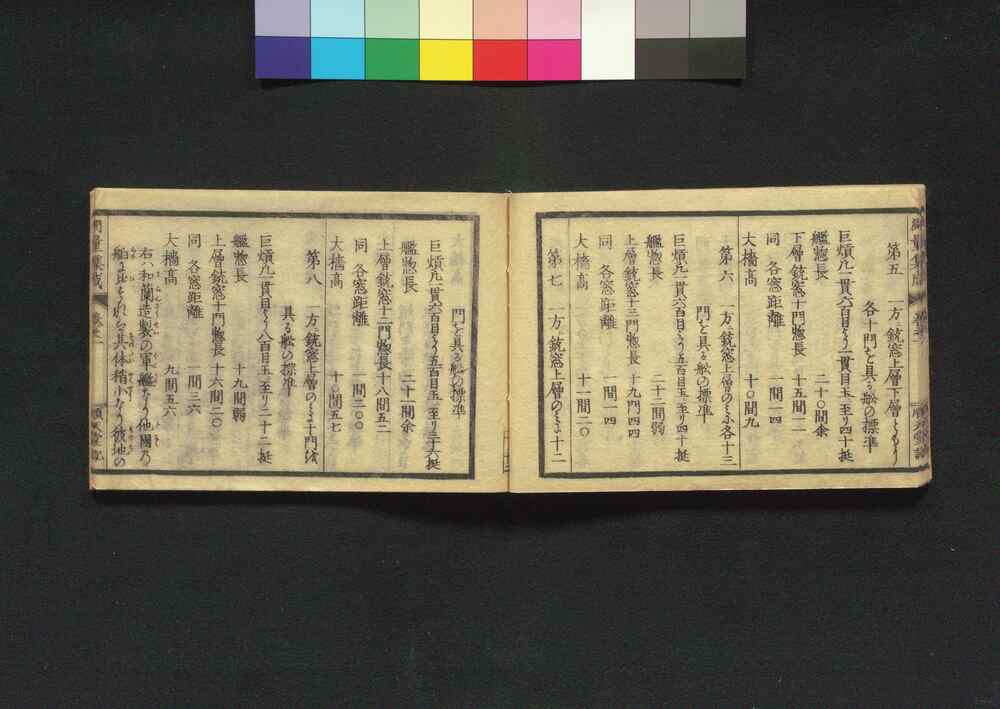 第五　一方銃窓上層下層ともに
各十門を具る舩の標準
巨熕九一貫六百目ゟ一貫目玉至り四十挺
艦惣長　二十〇間余
下層銃窓十門惣長　十五間二一
同　各窓距離　一間一四
大檣高　十〇間九
第六　一方銃窓上層のミ各十三
門を具る舩の標準
巨熕九一貫六百目ゟ五百目玉至り四十挺
艦惣長　二十二間弱
上層銃窓十三門惣長　十九間四四
同　各窓距離　一間一四
大檣高　十一間二〇
第七　一方銃窓上層のミ十二
門を具る舩の標準
巨熕九一貫六百目ゟ五百目玉至り三十六挺
艦惣長　二十一間余
上層銃窓十二門惣長　十八間五二
同　各窓距離　一間二〇〇
大檣高　十〇間五七
第八　一方銃窓上層のミ十門を
具る舩の標準
巨熕九一貫目ゟ八百目玉至り二十二挺
艦惣長　十九間弱
上層銃窓十門惣長　十六間二〇
同　各窓距離　一間三六
大檣高　九間五六
右ハ和蘭造製の軍艦なり他國乃
舶に見るれハ具体稍小なり彼地の